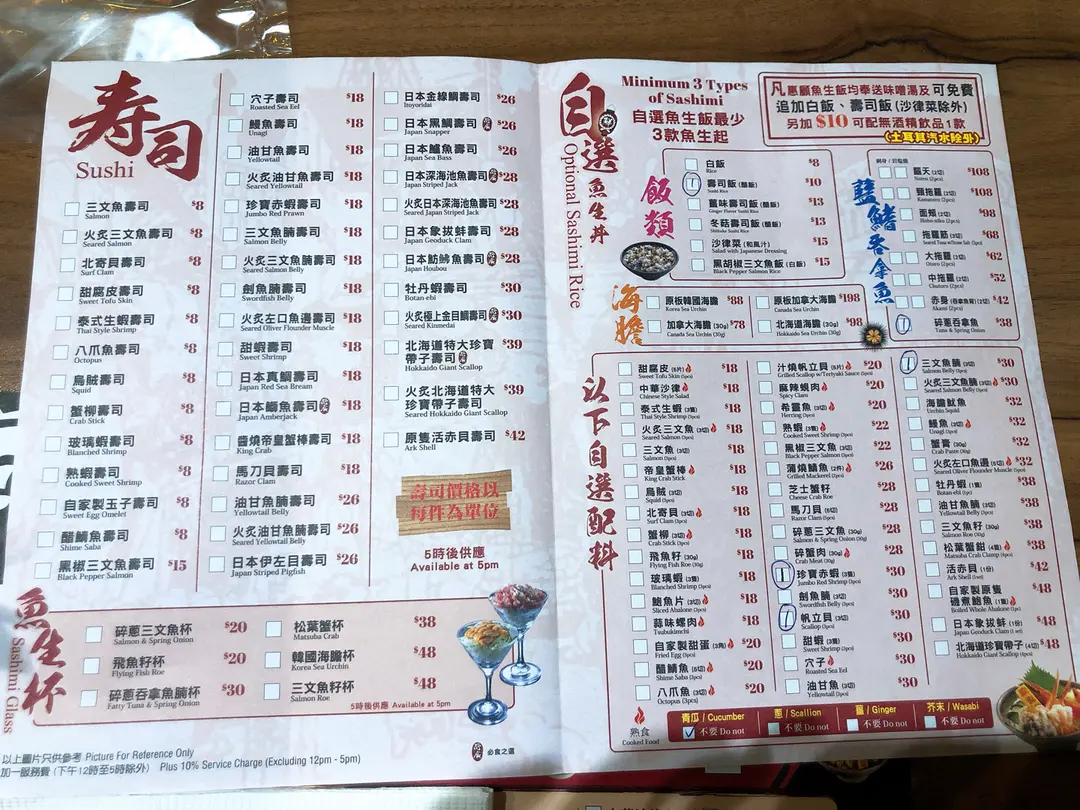 寿司
Sushi
三文魚壽司 $8
Salmon
火炙三文魚壽司 $8
Seared Salmon
北寄貝壽司 $8
Surf Clam
甜腐皮壽司 $8
Sweet Tofu Skin
泰式生蝦壽司 $8
Thai Style Shrimp
八爪魚壽司 $8
Octopus
烏賊壽司 $8
Squid
蟹柳壽司 $8
Crab Stick
玻璃蝦壽司 $8
Blanched Shrimp
熟蝦壽司 $8
Cooked Sweet Shrimp
自家製玉子壽司 $8
Sweet Egg Omelet
醋鯖魚壽司 $8
Shime Saba
黑椒三文魚壽司 $15
Black Pepper Salmon
穴子壽司 $18
Roasted Sea Eel
鰻魚壽司 $18
Unagi
油甘魚壽司 $18
Yellowtail
火炙油甘魚壽司 $18
Seared Yellowtail
珍寶赤蝦壽司 $18
Jumbo Red Prawn
三文魚腩壽司 $18
Salmon Belly
火炙三文魚腩壽司 $18
Seared Salmon Belly
劍魚腩壽司 $18
Swordfish Belly
火炙左口魚邊壽司 $18
Seared Oliver Flounder Muscle
甜蝦壽司 $18
Sweet Shrimp
日本真鯛壽司 $18
Japan Red Sea Bream
日本鰤魚壽司 $18
Japan Amberjack
醬燒帝皇蟹棒壽司 $18
King Crab
馬刀貝壽司 $18
Razor Clam
油甘魚腩壽司 $26
Yellowtail Belly
火炙油甘魚腩壽司 $26
Seared Yellowtail Belly
日本伊左目壽司 $26
Japan Striped Pigfish
日本金線鯛壽司 $26
Itoyoridai
日本黑鯛壽司 $26
Japan Snapper
日本鱸魚壽司 $26
Japan Sea Bass
日本深海池魚壽司 $28
Japan Striped Jack
火炙日本深海池魚壽司 $28
Seared Japan Striped Jack
日本象拔蚌壽司 $28
Japan Geoduck Clam
日本魴鮄魚壽司 $28
Japan Houbou
牡丹蝦壽司 $30
Botan-ebi
火炙極上金目鯛壽司 $30
Seared Kinmedai
北海道特大珍寶 $39
帶子壽司
Hokkaido Giant Scallop
火炙北海道特大 $39
珍寶帶子壽司
Seared Hokkaido Giant Scallop
原隻活赤貝壽司 $42
Ark Shell
壽司價格以
每件為單位
5時後供應
Available at 5pm
魚生杯
Sashimi Glass
碎蔥三文魚杯 $20
Salmon & Spring Onion
飛魚籽杯 $20
Flying Fish Roe
碎蔥吞拿魚腩杯 $30
Fatty Tuna & Spring Onion
松葉蟹杯 $38
Matsuba Crab
韓國海膽杯 $48
Korea Sea Urchin
三文魚籽杯 $48
Salmon Roe
5時後供應 Available at 5pm
必食之選
以上圖片只供參考 Picture For Reference Only
加一服務費 (下午12時至5時除外) Plus 10% Service Charge (Excluding 12pm - 5pm)
自選魚生丼
Optional Sashimi Rice
Minimum 3 Types
of Sashimi
自選魚生飯最少
3款魚生起
凡惠顧魚生飯均奉送味噌湯及可免費
追加白飯、壽司飯 (沙律菜除外)
另加 $10 可配無酒精飲品1款
(土耳其汽水除外)
飯類
白飯 $8
Rice
壽司飯 (醋飯) $10
Sushi Rice
薑味壽司飯 (醋飯) $13
Ginger Flavor Sushi Rice
冬菇壽司飯 (醋飯) $13
Shiitake Sushi Rice
沙律菜 (和風汁) $15
Salad with Japanese Dressing
黑胡椒三文魚飯 (白飯) $15
Black Pepper Salmon Rice
藍鰭吞拿魚
腦天 $108
Noten (2pcs)
頸拖羅 (2切) $108
Kamatoro (2pcs)
面頰 (2切) $98
Hoho-niku (2pcs)
拖羅筋 (3切) $68
大拖羅 (2切) $62
Otoro (2pcs)
中拖羅 (2切) $52
Chutoro (2pcs)
赤身 (吞拿魚背) (2切) $42
Akami (2pcs)
碎蔥吞拿魚 $38
Tuna & Spring Onion
海膽
原板韓國海膽 $88
Korea Sea Urchin
原板加拿大海膽 $198
Canada Sea Urchin
加拿大海膽 (30g) $78
Canada Sea Urchin (30g)
北海道海膽 (30g) $98
Hokkaido Sea Urchin (30g)
以下自選配料
甜腐皮 (5片) $18
Sweet Tofu Skin (5pcs)
中華沙律 $18
Chinese Style Salad
泰式生蝦 (3隻) $18
Thai Style Shrimp (3pcs)
火炙三文魚 (3切) $18
Seared Salmon (3pcs)
三文魚 (3切) $18
Salmon (3pcs)
帝皇蟹棒 $18
King Crab Stick
烏賊 (3切) $18
Squid (3pcs)
北寄貝 (3切) $18
Surf Clam (3pcs)
蟹柳 (3切) $18
Crab Stick (3pcs)
飛魚籽 (30g) $18
Flying Fish Roe (30g)
玻璃蝦 (3隻) $18
Blanched Shrimp (3pcs)
鮑魚片 (3切) $18
Sliced Abalone (3pcs)
蒜味螺肉 $18
Tsubukimchi
自家製甜蛋 (3角) $20
Fried Egg (3pcs)
醋鯖魚 (5切) $20
Shime Saba (5pcs)
八爪魚 (3切) $20
Octopus (3pcs)
汁燒帆立貝 (5片) $20
Grilled Scallop w/Teriyaki Sauce (5pcs)
麻辣蜆肉 $20
Spicy Clam
希靈魚 (3切) $20
Herring (3pcs)
熟蝦 (3隻) $22
Cooked Sweet Shrimp (3pcs)
黑椒三文魚 (3切) $22
Black Pepper Salmon (3pcs)
蒲燒鯖魚 (2件) $26
Grilled Mackerel (2pcs)
芝士蟹籽 $28
Cheese Crab Roe
馬刀貝 (5切) $28
Razor Clam (5pcs)
碎蔥三文魚 (30g) $28
Salmon & Spring Onion (30g)
碎蟹肉 (30g) $28
Crab Meat (30g)
珍寶赤蝦 (3隻) $30
Jumbo Red Shrimp (3pcs)
劍魚腩 (3切) $30
Swordfish Belly (3pcs)
帆立貝 (3切) $30
Scallop (3pcs)
甜蝦 (3隻) $30
Sweet Shrimp (3pcs)
穴子 $30
Roasted Sea Eel
油甘魚 (3切) $30
Yellowtail (3pcs)
三文魚腩 (3切) $30
Salmon Belly (3pcs)
火炙三文魚腩 (3切) $30
Seared Salmon Belly (3pcs)
海膽魷魚 $32
Urchin Squid
鰻魚 (3切) $32
Unagi (3pcs)
蟹膏 (30g) $32
Crab Paste (30g)
火炙左口魚邊 (5切) $32
Seared Oliver Flounder Muscle (5pcs)
牡丹蝦 (1隻) $38
Botan-ebi (1pc)
油甘魚腩 (3切) $38
Yellowtail Belly (3pcs)
三文魚籽 (30g) $38
Salmon Roe (30g)
松葉蟹鉗 (4隻) $38
Matsuba Crab Clamp (4pcs)
活赤貝 (1份) $42
Ark Shell (1set)
自家製原隻 $48
磯煮鮑魚 (1隻)
Boiled Whole Abalone (1pc)
日本象拔蚌 (1份) $48
Japan Geoduck Clam (1 set)
北海道珍寶帶子 (4切) $48
Hokkaido Giant Scallop (4pcs)
熟食
Cooked Food
青瓜 / Cucumber
不要 Do not
蔥 / Scallion
不要 Do not
薑 / Ginger
不要 Do not
芥末 / Wasabi
不要 Do not